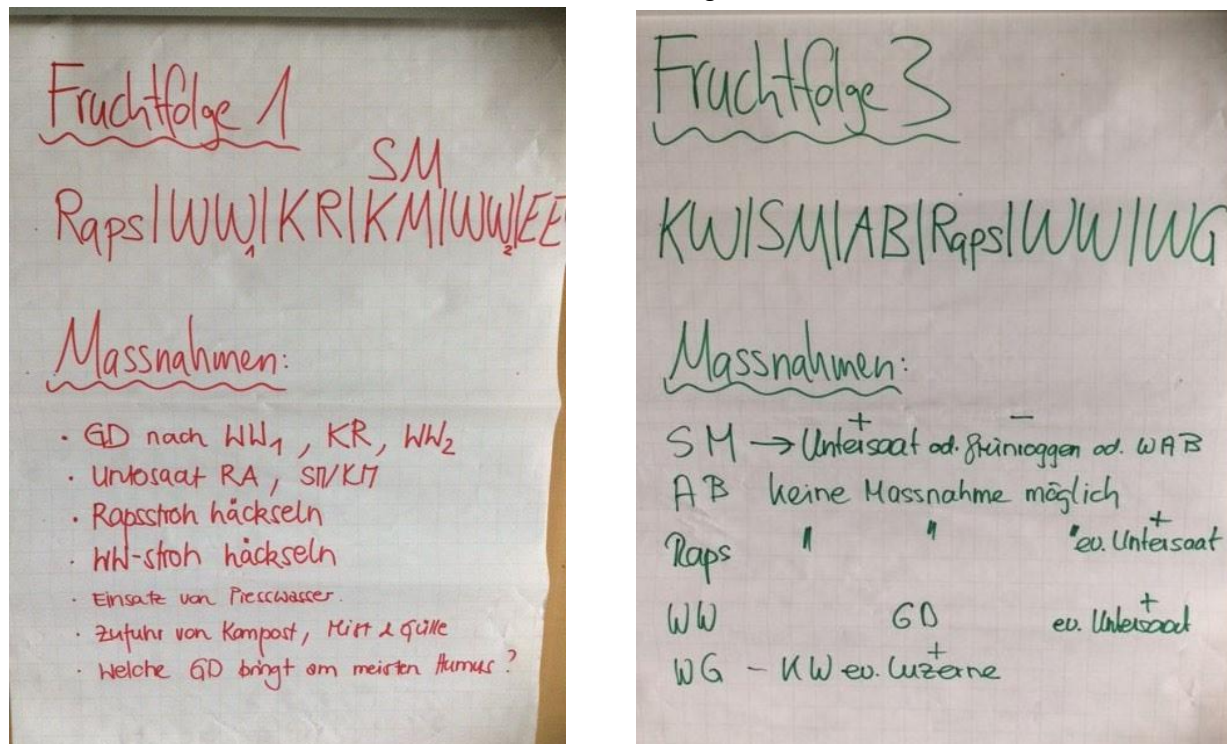 Fruchtfolge 1
SM
Raps|WW1|KR|KM|WW2|EE
Massnahmen:
· GD nach WW1, KR, WW2
· Untosaat RA, SM/KM
· Rapsstroh häckseln
· WW-stroh häckseln
· Einsatz von Presswasser.
· Zufuhr von Kompost, Mist & Gülle
· Welche GD bringt am meisten Humus?
Fruchtfolge 3
KW|SM|AB|Raps|WW|WG
Massnahmen:
+ −
SM → Untersaat od. Grünroggen od. WAB
AB keine Massnahme möglich
+
Raps " " " ev. Untersaat
+
WW GD ev. Untersaat
+
WG - KW ev. Luzerne